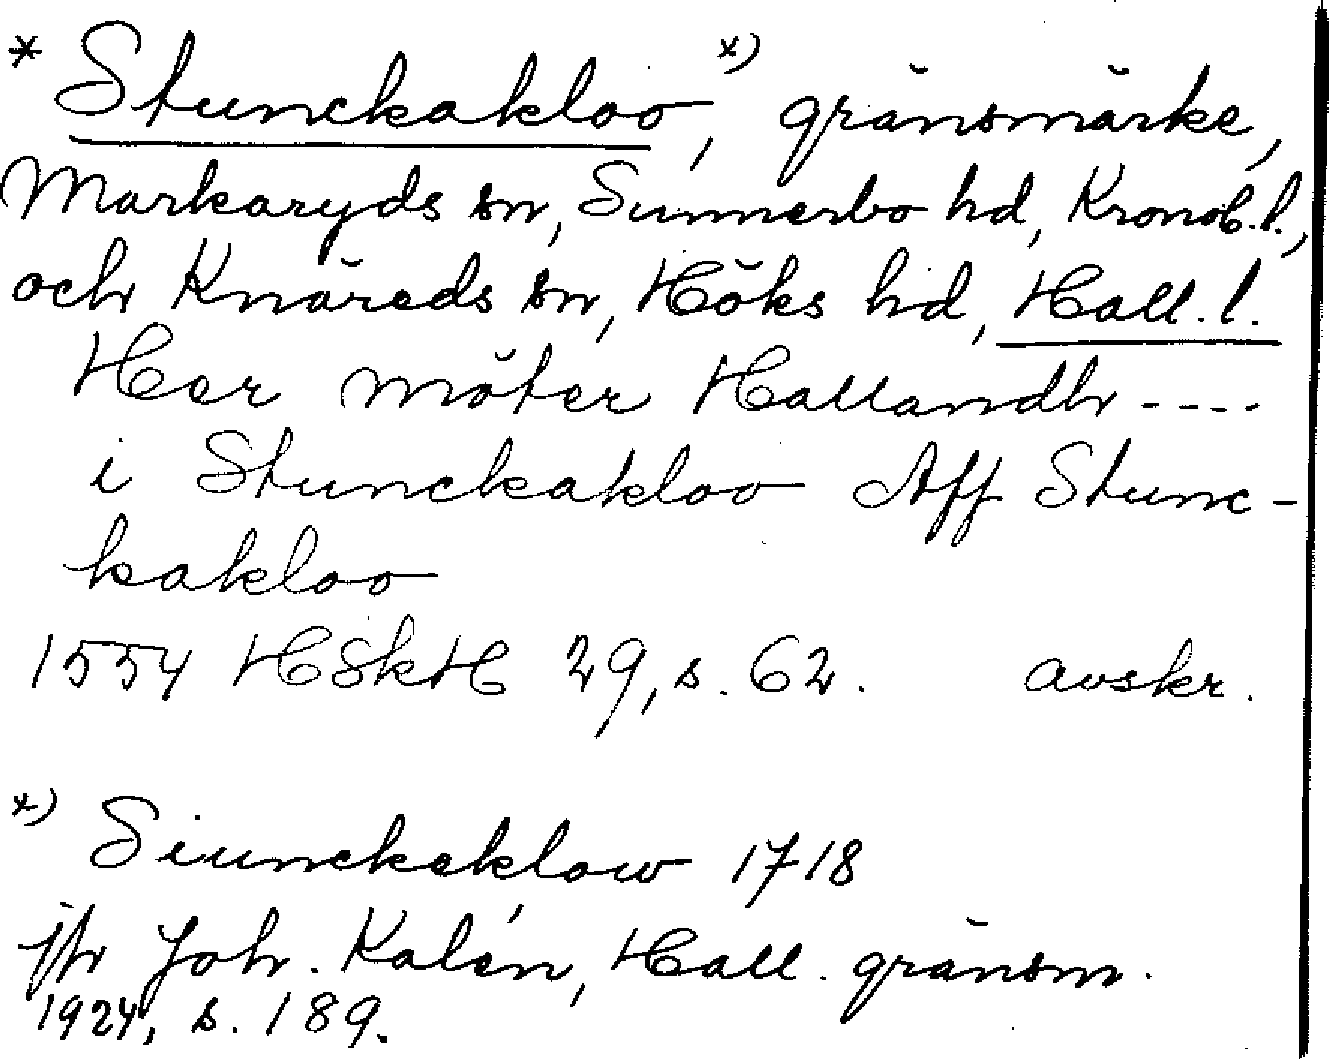 * Stunckakloo, x) gränsmärke,
Markaryds sn, Sunnerbo hd, Kronob.l.,
och Knäreds sn, Höks hd, Hall.l.
Her möter Hallandh ----
i Stunckakloo Aff Stunc-
kakloo
1554 HSkH 29, s. 62. avskr.
x) Siunckeklow 1718
jfr Joh. Kalén, Hall. gränsm.
1924, s. 189.